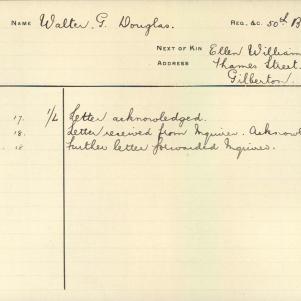 NAME Walter. G. Douglas. REG. &C. 50th B
NEXT OF KIN Ellen William
ADDRESS Thames Street.
Gilberton.
17. 1/L Letter acknowledged.
18. Letter received from Inquirer. Acknowl
18 Further letter forwarded Inquirer.